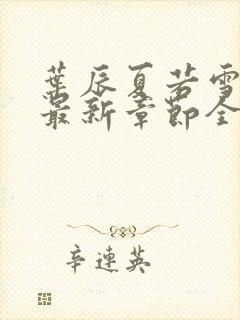 葉辰夏若雪
最新章節全
辛連英